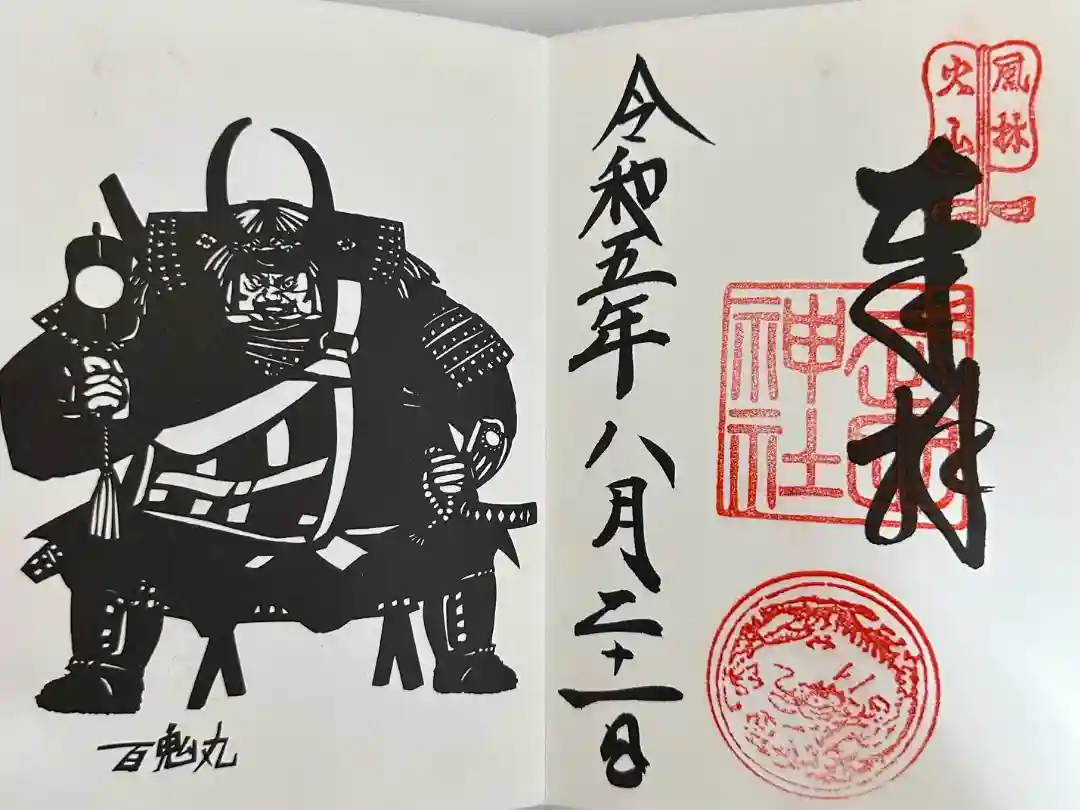 風林
火山
奉拝
武田
神社
令和五年八月二十一日
百鬼丸